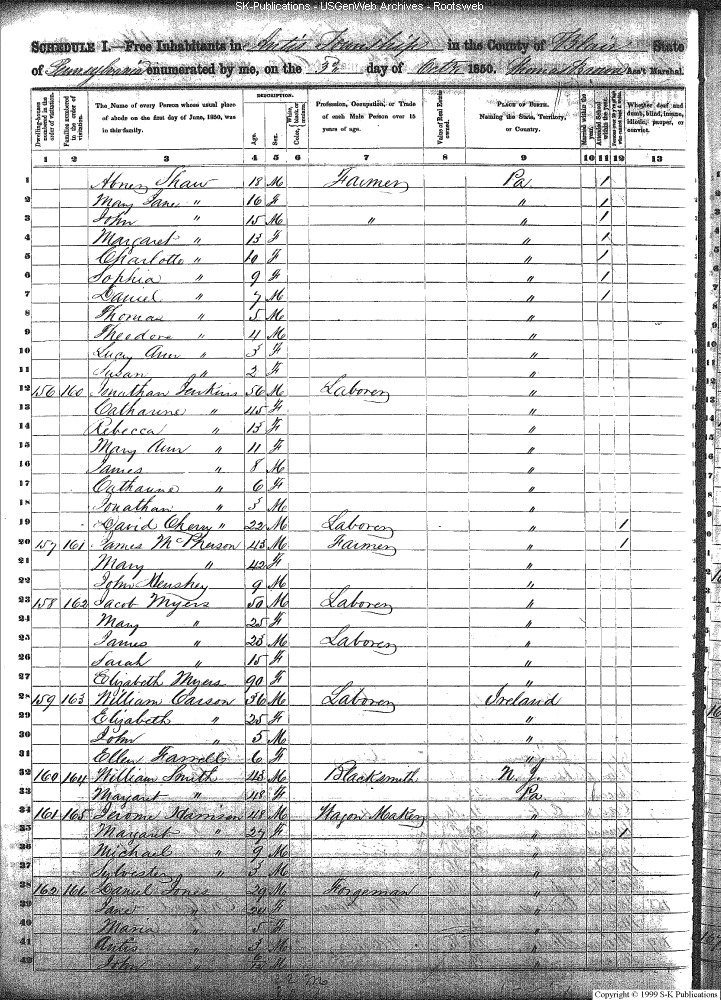 SK-Publications - USGenWeb Archives - Rootsweb
SCHEDULE I.—Free Inhabitants in Antis Township in the County of Blair State
of Pennsylvania enumerated by me, on the day of Octr 1850. Thomas Ass't Marshal.
Dwelling-houses numbered in the order of visitation. Families numbered in the order of visitation. The Name of every Person whose usual place of abode on the first day of June, 1850, was in this family. DESCRIPTION. Age. Sex. Color, White, black, or mulatto. Profession, Occupation, or Trade of each Male Person over 15 years of age. Value of Real Estate owned. PLACE OF BIRTH. Naming the State, Territory, or Country. Married within the year. Attended School within the year. Persons over 20 y'rs of age who cannot read & write. Whether deaf and dumb, blind, insane, idiotic, pauper, or convict.
1 2 3 4 5 6 7 8 9 10 11 12 13
1 Abner Shaw 18 M Farmer Pa / 1
2 Mary Jane " 16 F " / 2
3 John " 15 M " " / 3
4 Margaret " 13 F " / 4
5 Charlotte " 10 F " / 5
6 Sophia " 9 F " / 6
7 Daniel " 7 M " / 7
8 Thomas " 5 M " 8
9 Theodore " 4 M " 9
10 Lucy Ann " 3 F " 10
11 Susan " 2 F " 11
12 156 160 Jonathan Jenkins 56 M Laborer " 12
13 Catharine " 45 F " 13
14 Rebecca " 13 F " 14
15 Mary Ann " 11 F " 15
16 James " 8 M " 16
17 Catharine " 6 F " 17
18 Jonathan " 3 M " 18
19 David Cherry " 22 M Laborer " / 19
20 157 161 James McPherson 43 M Farmer " / 20
21 Mary " 42 F " 21
22 John Henshey 9 M " 22
23 158 162 Jacob Myers 50 M Laborer " 23
24 Mary " 25 F " 24
25 James " 23 M Laborer " 25
26 Sarah " 15 F " 26
27 Elizabeth Myers 90 F " 27
28 159 163 William Carson 36 M Laborer Ireland 28
29 Elizabeth " 25 F " 29
30 John " 5 M " 30
31 Ellen Farrell 6 F " 31
32 160 164 William Smith 43 M Blacksmith N. J. 32
33 Margaret " 48 F Pa 33
34 161 165 Jerome Harrison 48 M Wagon Maker " 34
35 Margaret " 27 F " / 35
36 Michael " 9 M " 36
37 Sylvester " 3 M " 37
38 162 166 Daniel Jones 29 M Forgeman " 38
39 Jane " 24 F " 39
40 Maria " 5 F " 40
41 Antis " 3 M " 41
42 John " M " 42
Copyright © 1999 S-K Publications